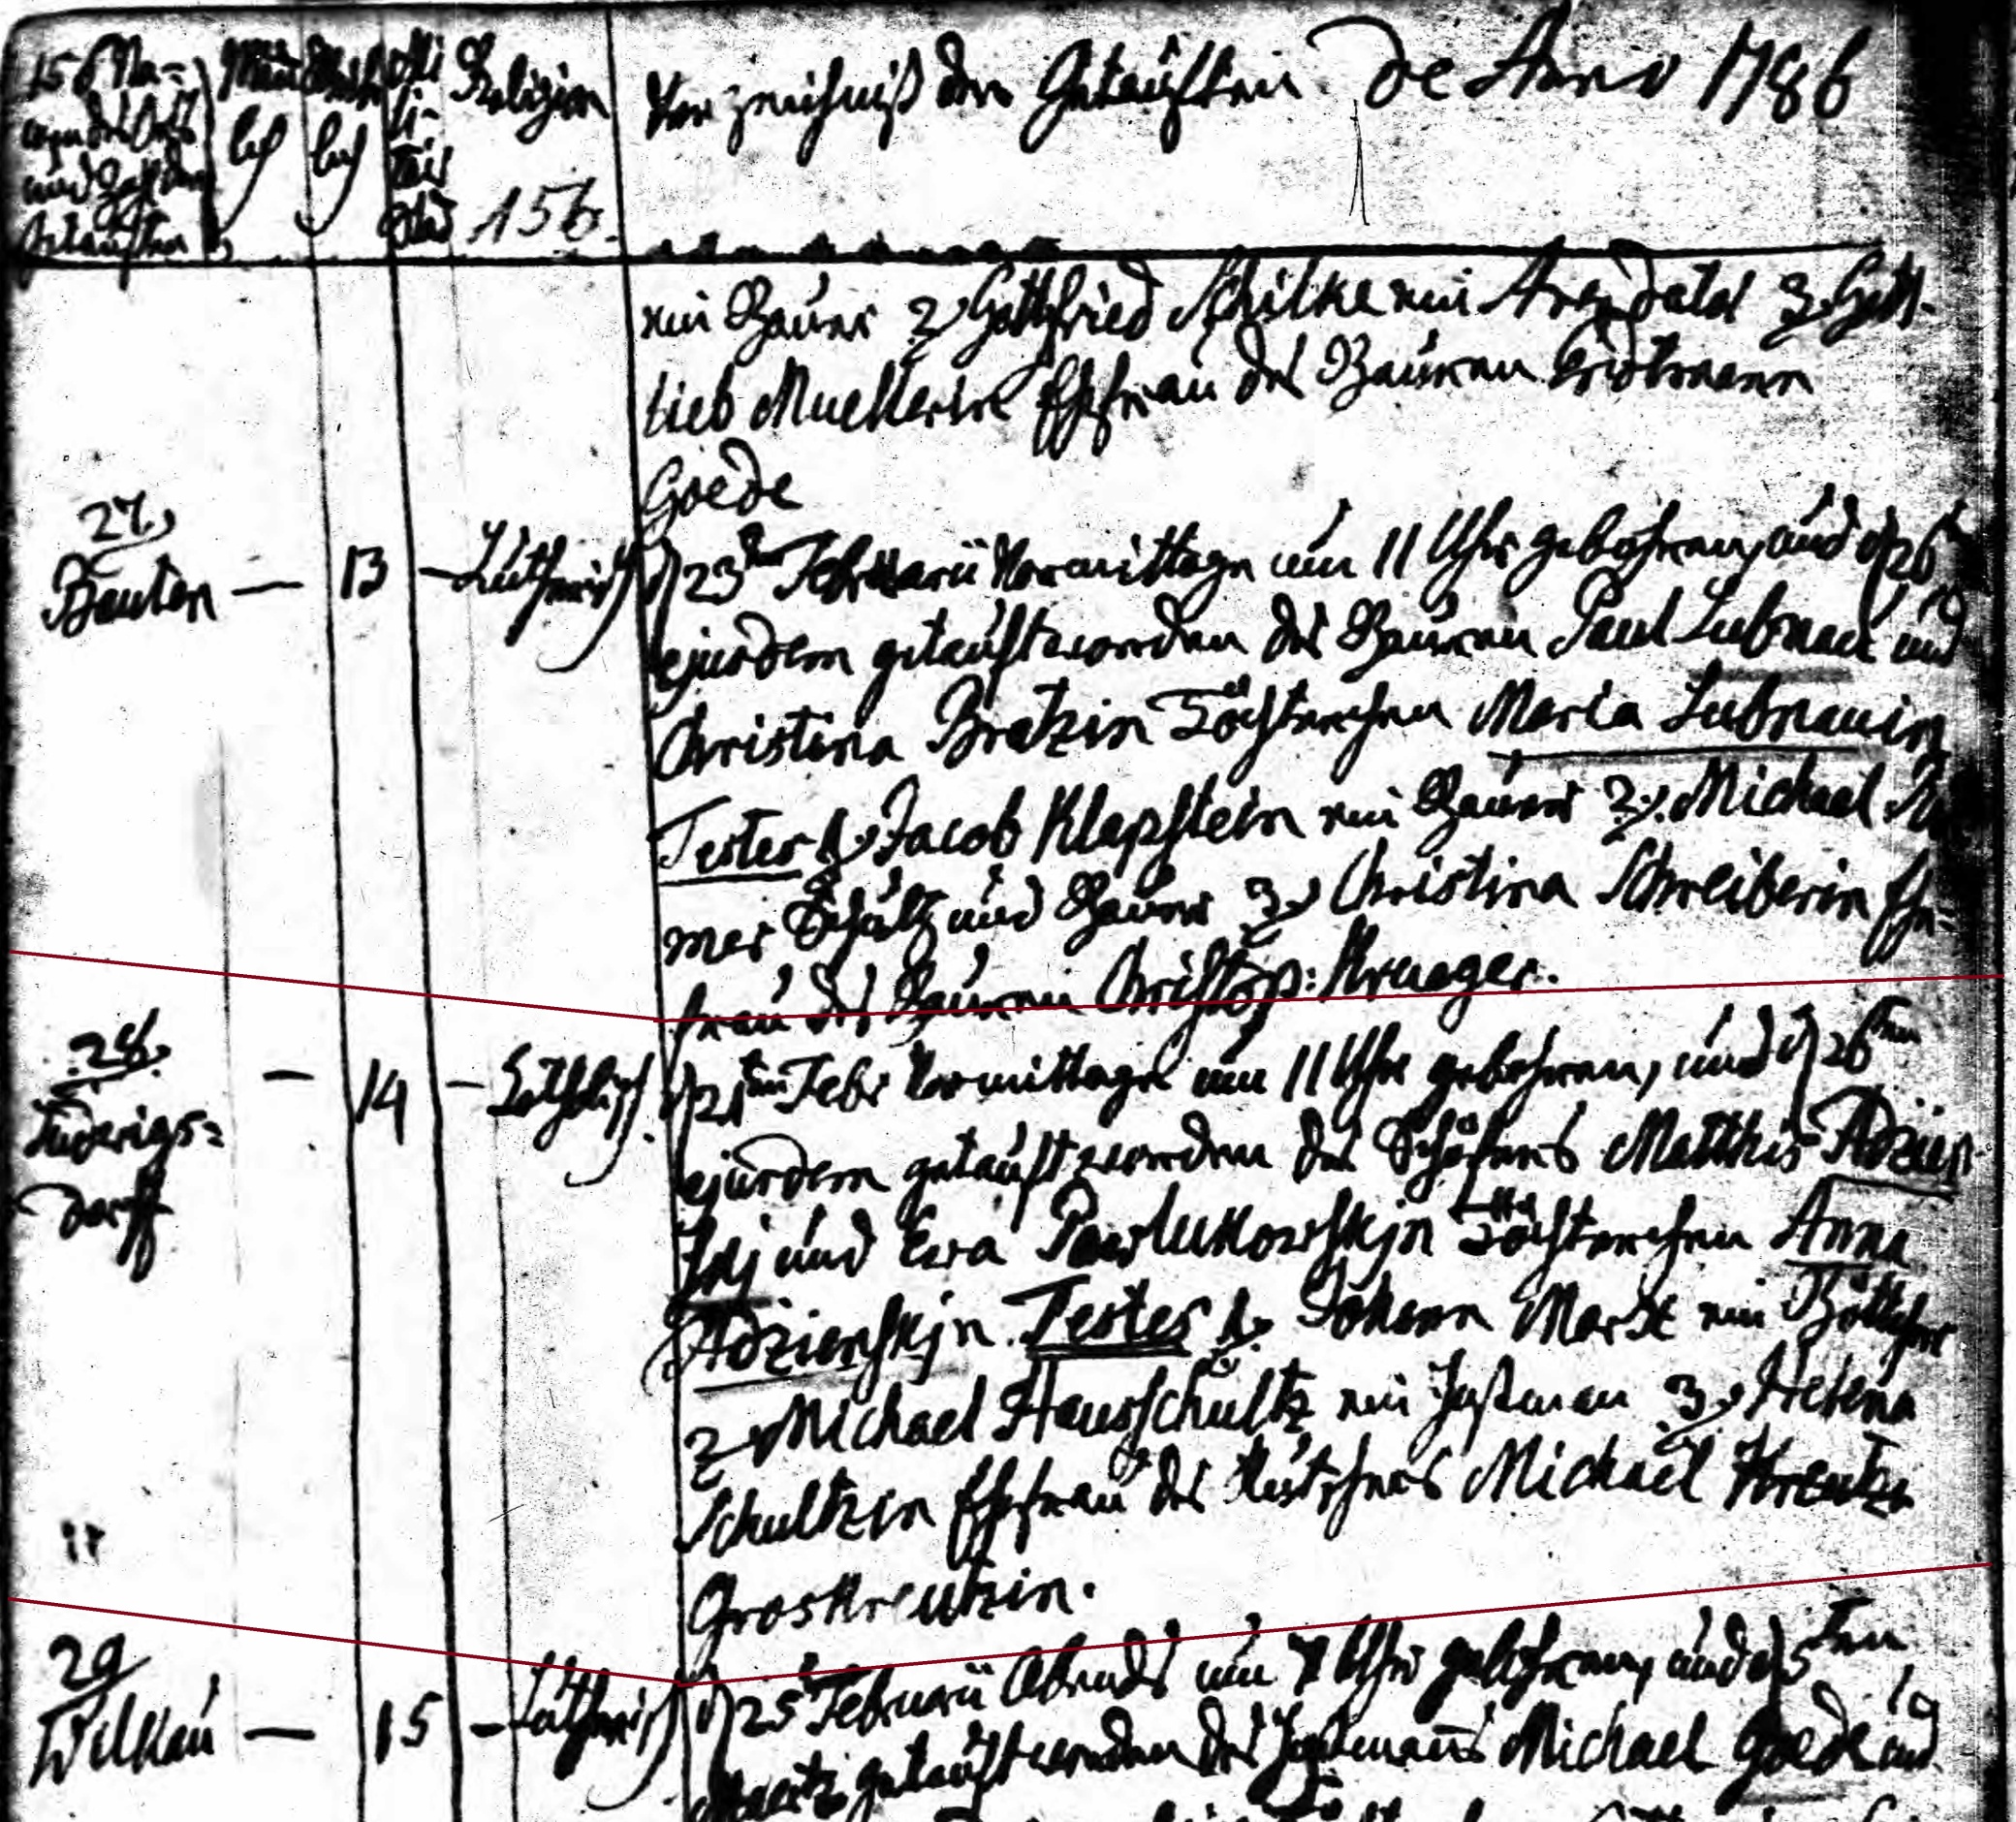 156 Na=
men des Orts
und Zahl der
Getauften
Männ
lich
Weib
lich
Mi
li-
tair
Stand
Religion
156.
Verzeichniß der Getauften de Anno 1786
ein Bauer 2, Gottfried Schilke ein Arendator 3, Gott-
lieb Muellerin Ehefrau des Bauren Erdtmann
Goede
27,
Bauten — 13 — Lutherisch
d 23ten Februarii Vormittage um 11 Uhr gebohren, und d 26ten
ejusdem getauft worden des Bauren Paul Lubnau und
Christina Bratzin Töchterchen Maria Lubnauin
Testes 1, Jacob Klapstein ein Bauer 2, Michael
mer Schultz und Bauer 3, Christina Schreiberin Ehe=
frau des Bauren Christop: Krueger.
28,
Ludwigs=
dorff
— 14 — Catholisch
d 21ten Febr Vormittage um 11 Uhr gebohren, und d 26ten
ejusdem getauft worden des Schäfers Matthis Adzien
skj und Ewa Pawlukowskjn Töchterchen Anna
Adzienskjn. Testes 1, Johann Marx ein Böttcher
2, Michael Hausschultz ein Jnstman 3, Helena
Schultzin Ehefrau des Kutschers Michael Kreutz
Groskreutzin.
29
Wilkau — 15 — Lutherisch
d 25 Februarii Abends um 7 Uhr gebohren, und d 5ten
Martz getauft worden des Jnstmans Michael Goede und